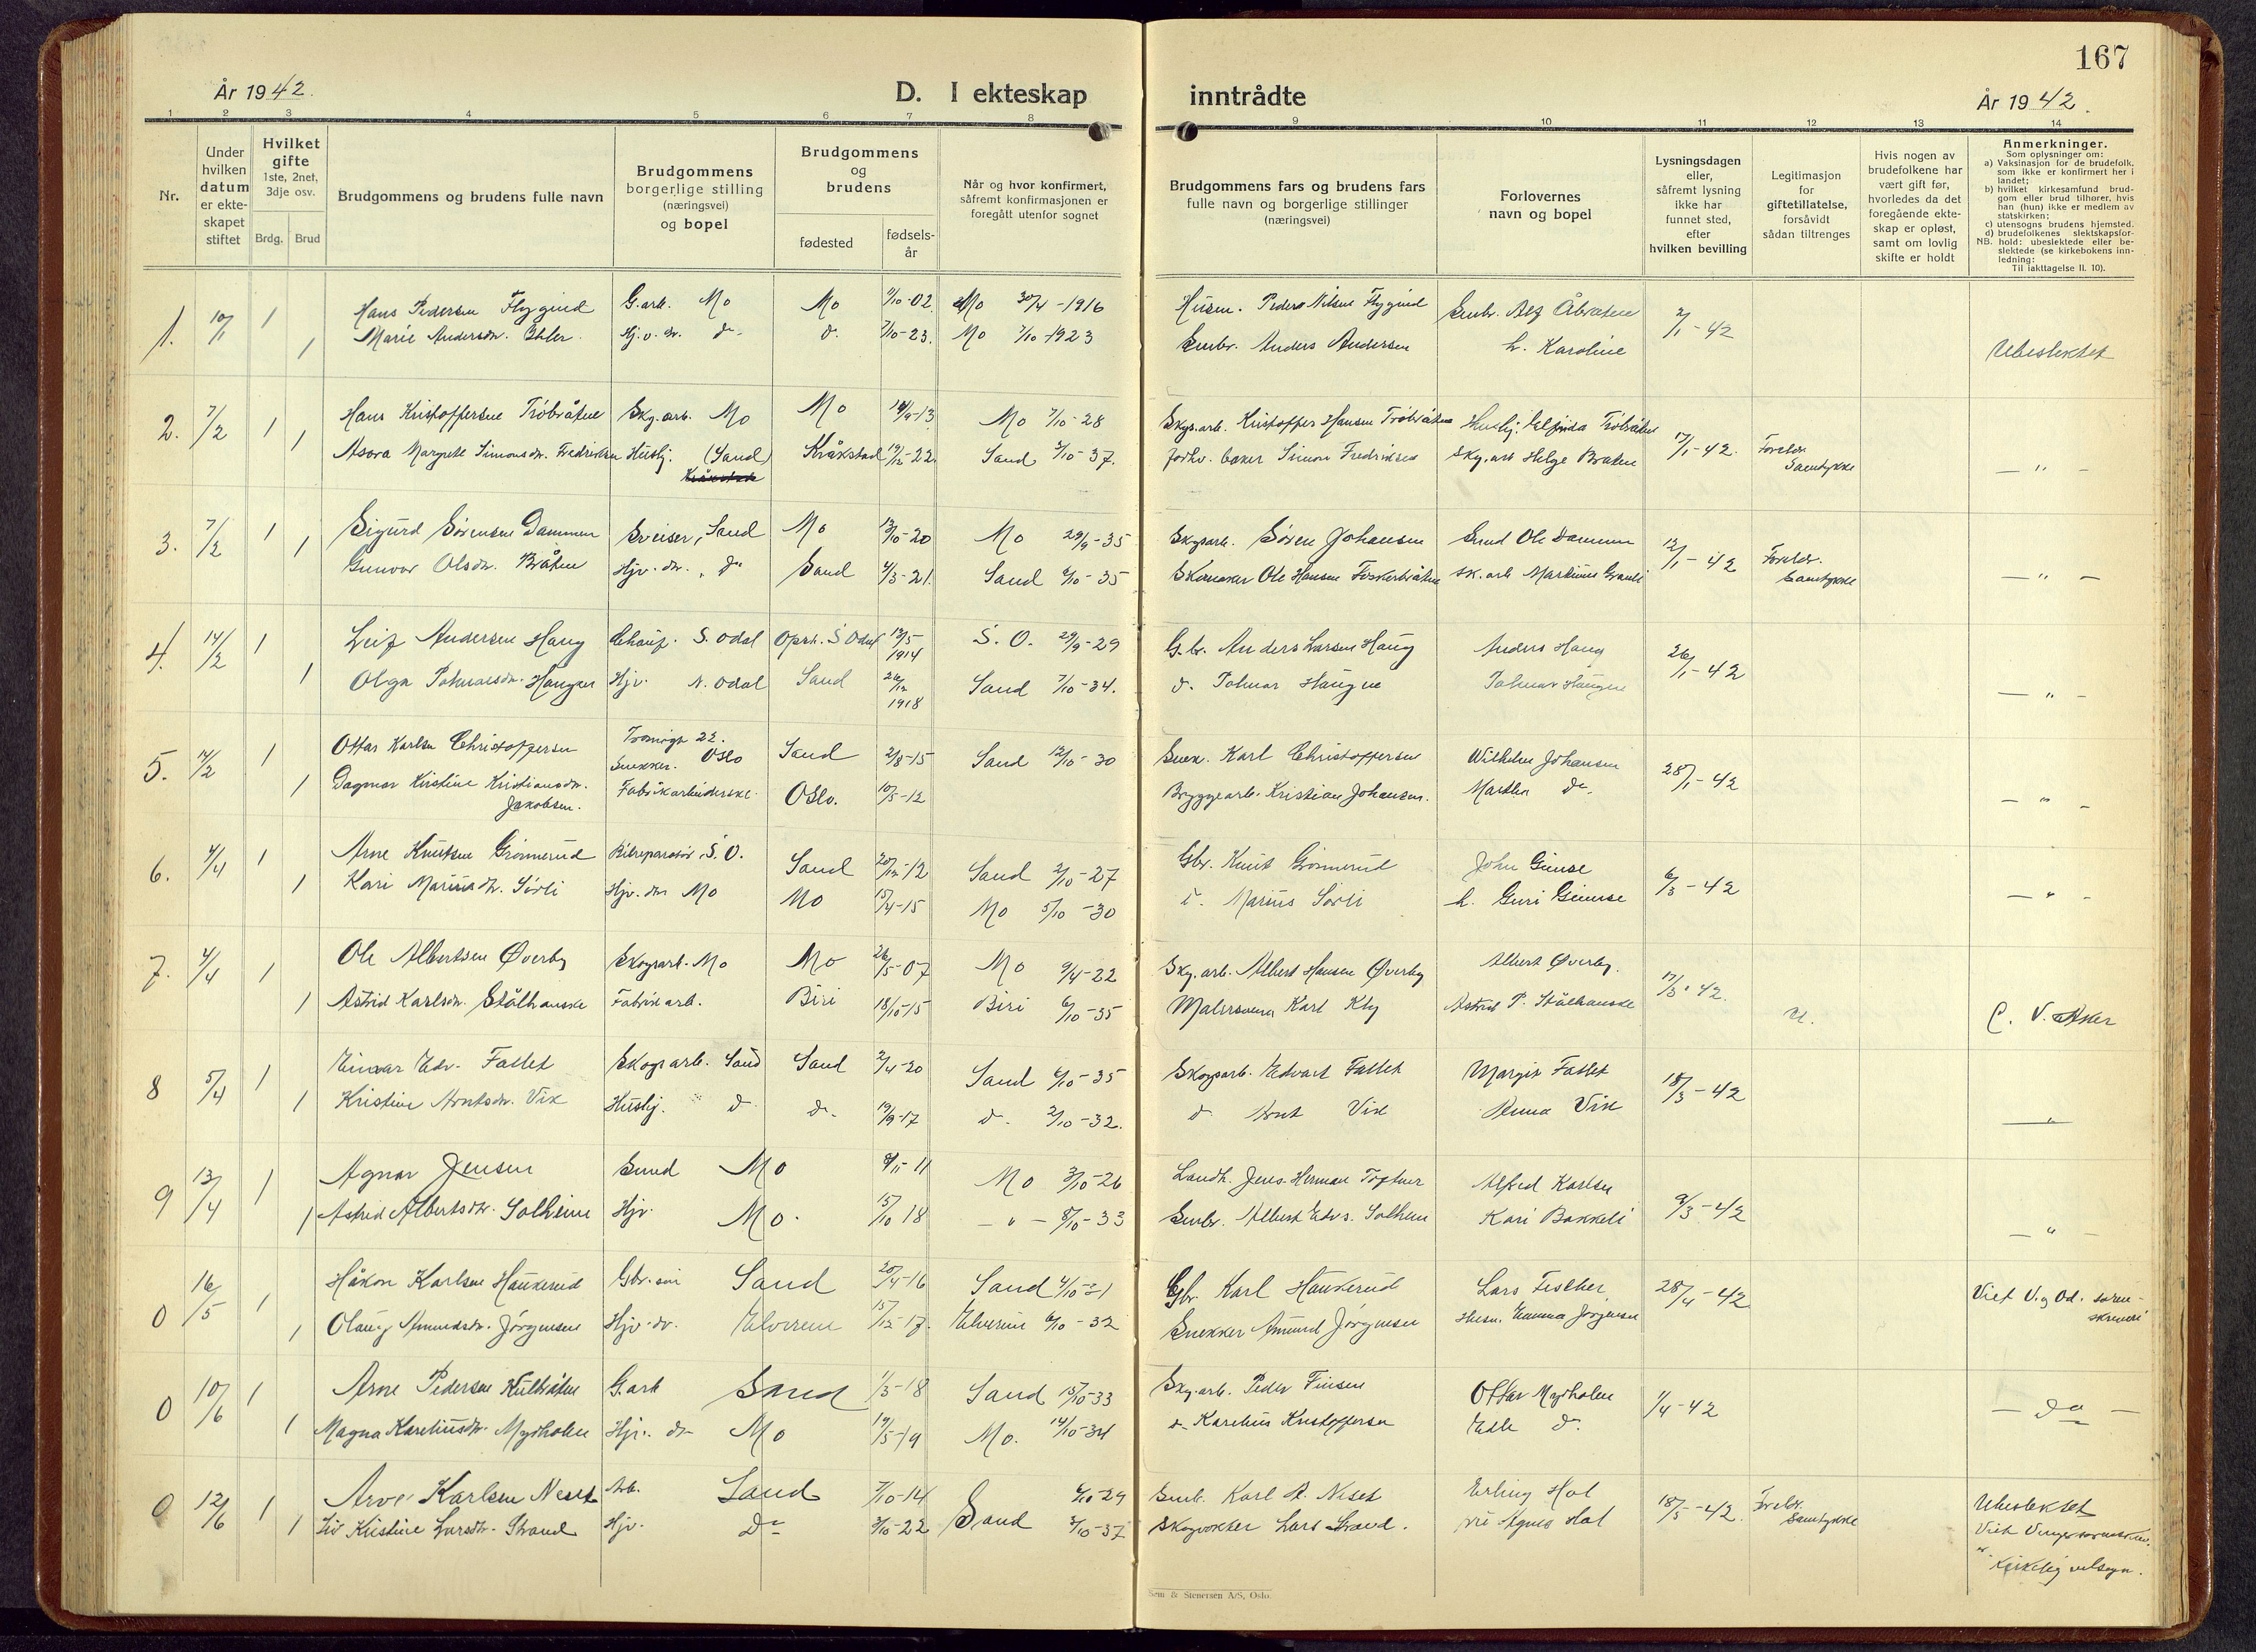 167
År 1942.
D. I ekteskap
inntrådte
År 1942.
1 2 3 4 5 6 7 8 9 10 11 12 13 14
Nr.
Under hvilken datum er ekteskapet stiftet
Hvilket gifte
1ste, 2net, 3dje osv.
Brdg. Brud
Brudgommens og brudens fulle navn
Brudgommens borgerlige stilling (næringsvei) og bopel
Brudgommens og brudens
fødested
fødselsår
Når og hvor konfirmert, såfremt konfirmasjonen er foregått utenfor sognet
Brudgommens fars og brudens fars fulle navn og borgerlige stillinger (næringsvei)
Forlovernes navn og bopel
Lysningsdagen eller, såfremt lysning ikke har funnet sted, efter hvilken bevilling
Legitimasjon for giftetillatelse, forsåvidt sådan tiltrenges
Hvis nogen av brudefolkene har vært gift før, hvorledes da det foregående ekteskap er opløst, samt om lovlig skifte er holdt
Anmerkninger.
Som oplysninger om:
a) Vaksinasjon for de brudefolk, som ikke er konfirmert her i landet;
b) hvilket kirkesamfund brudgom eller brud tilhører, hvis han (hun) ikke er medlem av statskirken;
c) utensogns brudens hjemsted.
d) brudefolkenes slektskapsforhold: ubeslektede eller beslektede (se kirkebokens innledning:
NB.
Til iakttagelse II. 10).
1. 10/1 1 Hans Pedersen Flygind G.arb. Mo Mo 11/10-02 Mo 30/4-1916 Husm. Peder Nilsen Flygind Smbr. Alf Åbråten 2/1-42
1 Marie Andersdtr. Hj.v. dtr. do Mo 7/10-1923 Smbr. Anders Andersen h. Karoline Ubeslektet
2. 7/2 1 Hans Kristoffersen Tröbråten Skg.arb. Mo Mo 14/9-13 Mo 7/10-28 Skgs.arb. Kristoffer Hansen Tröbråten Tröbråten 17/1-42. Foreldr. Samtykke
1 Margrete Simonsdtr. Fredriksen Huslj. (Sand) Kråkstad 19/12-22. Sand 3/10-37. Simon Fredriksen Skg.arb Helge Bråten — " —
3. 7/2 1 Sigurd Sørensen Dammen Sveiser, Sand Mo 13/10-20 Mo 29/9-35 Skgsarb. Søren Johansen Smed Ole Dammen 12/1-42 Foreldr. Samtykke
1 Gunvor Olsdtr. Bråten Hjv. dtr., do Sand 4/3-21. Sand 6/10-35 Skomaker Ole Hansen sk.arb — " —
4. 14/2 1 Leif Andersen Haug Chauf. S. Odal Opst. S Odal 13/5 1914 S. O. 29/9-29 G.br. Anders Larsen Haug Anders Haug 26/1-42
1 Olga Haugen Hjv. N. Odal Sand 26/12 1918 Sand 7/10-34. d. — " —
5. 14/2 1 Ottar Karlsen Christoffersen 22. Snekker. Oslo Sand 2/8-15 Sand 12/10-30 Snek. Karl Christoffersen Wilhelm Johansen 28/1-42
1 Dagmar Kristine Kristiansdtr. Jakobsen. Fabrikarbeiderske. Oslo. 10/5-12 Bryggearb. Kristian Johansen. Martha do. — " —
6. 4/4 1 Arne Knutsen Grønnerud Bilreparatør, S. O. Sand 20/12-12 Sand 2/10-27 Gbr. Knut Grønnerud John Gimse 6/3-42
1 Kari Mariusdtr. Sörli Hjv. dtr Mo Mo 15/4-15 Mo 5/10-30 d. Marius Sörli h. Guri Gimse — " —
7. 4/4 1 Ole Albertsen Øverby Skogsarb. Mo Mo 26/5-07 Mo 9/4-22 Skg.arb. Albert Hansen Øverby Albert Øverby. 17/3-42.
1 Astrid Karlsdtr. Stålhanske Fabrikarb. Biri 18/10-15 Biri 6/10-35 Malersvenn Karl Astrid P. Stålhanske C. V. Aker
8 5/4 1 Einar Edv. Fallet Skogsarb. Sand Sand 2/4-20 Sand 6/10-35 Skogsarb. Edvart Fallet Margit Fallet 18/3-42
1 Kristine Arntsdtr. Vik Huslj. d d. 19/9-17 d. 2/10-32. d. Arnt Vik Anna Vik — " —
9 13/4 1 Agnar Jensen Smed Mo 8/11-11 Mo 3/10-26 Landh. Jens Herman Toftner Alfred Karlsen 9/3-42
1 Astrid Albertsdtr. Solheim Hjv. Mo. 15/10 18 — " — 8/10-33 Smbr. Albert Edvs. Solheim Kari Bakkeli — " —
0 16/5 1 Håkon Karlsen Haukerud Gbr.søn Sand 20/4-16 Sand 4/10-31 Gbr. Karl Haukerud Lars Fischer 28/4-42 Viet V. og Od. soren-skriveri
1 Olaug Amundsdtr. Jørgensen Hjv. dtr. Elverum 15/12-17. Elverum 6/10-32 Snekker Amund Jørgensen Husm. Emma Jørgensen
0 10/6 1 Arne Pedersen Kulbråten G.arb Sand 1/3-18 Sand 15/10-33 Skg.arb. Peder Finsen Ottar Myrholen 1/4-42 — do —
1 Magna Kareliusdtr. Myrholen Hjv. dtr Mo 19/5-19 Mo. 14/10-34 d. Karelius Kristoffersen do.
0 12/6 1 Arve Karlsen Neset Arb. Sand 7/10-14 Sand 6/10-29 Smb. Karl A. Neset Erling Hol 18/5-42. Foreldr. Samtykke Ubeslektet
1 Liv Kristine Larsdtr. Strand Hjv. do 3/10-22 3/10-37 Skogvokter Lars Strand. Agnes Hol Viet Vinger
kirkelig velsign.
Sem & Stenersen A/S, Oslo.